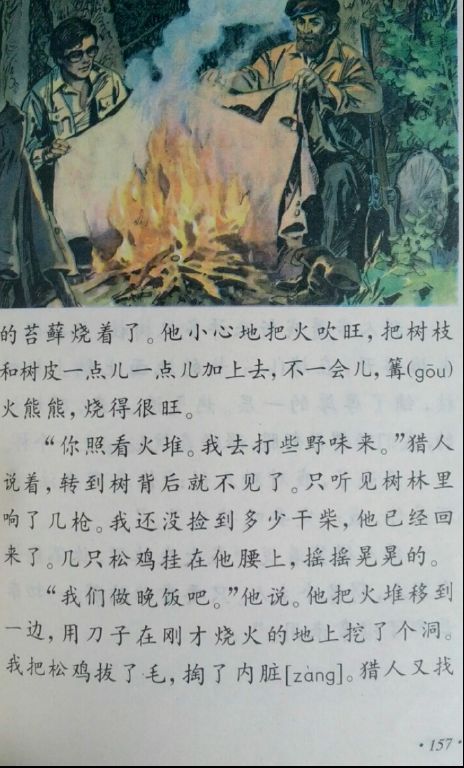 的苔藓烧着了。他小心地把火吹旺，把树枝
和树皮一点儿一点儿加上去，不一会儿，篝(gōu)
火熊熊，烧得很旺。
“你照看火堆。我去打些野味来。”猎人
说着，转到树背后就不见了。只听见树林里
响了几枪。我还没捡到多少干柴，他已经回
来了。几只松鸡挂在他腰上，摇摇晃晃的。
“我们做晚饭吧。”他说。他把火堆移到
一边，用刀子在刚才烧火的地上挖了个洞。
我把松鸡拔了毛，掏了内脏[zàng]。猎人又找
·157·